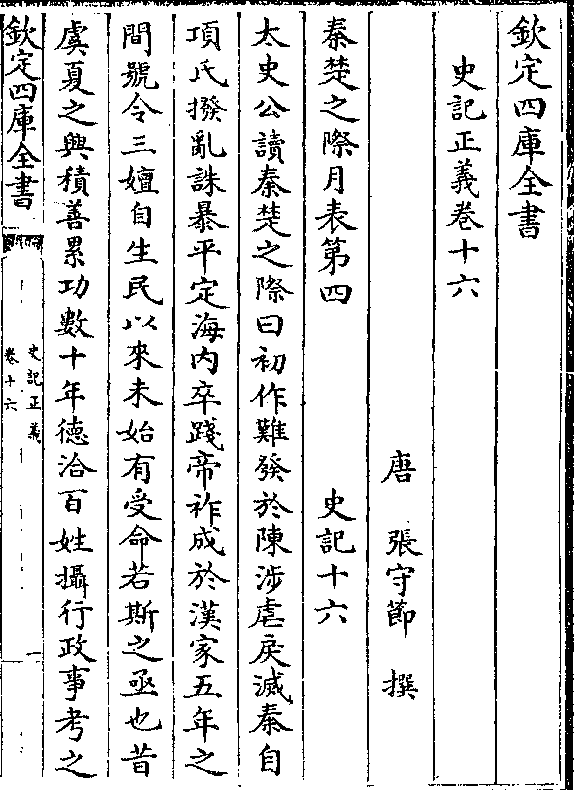 欽定四庫全書
史記正義卷十六
唐 張守節 撰
秦楚之際月表第四 史記十六
太史公讀秦楚之際曰初作難發於陳涉虐戾滅秦自
項氏撥亂誅暴平定海內卒踐帝祚成於漢家五年之
間號令三嬗自生民以來未始有受命若斯之亟也昔
虞夏之興積善累功數十年德洽百姓攝行政事考之
欽定四庫全書
史記正義
卷十六
一